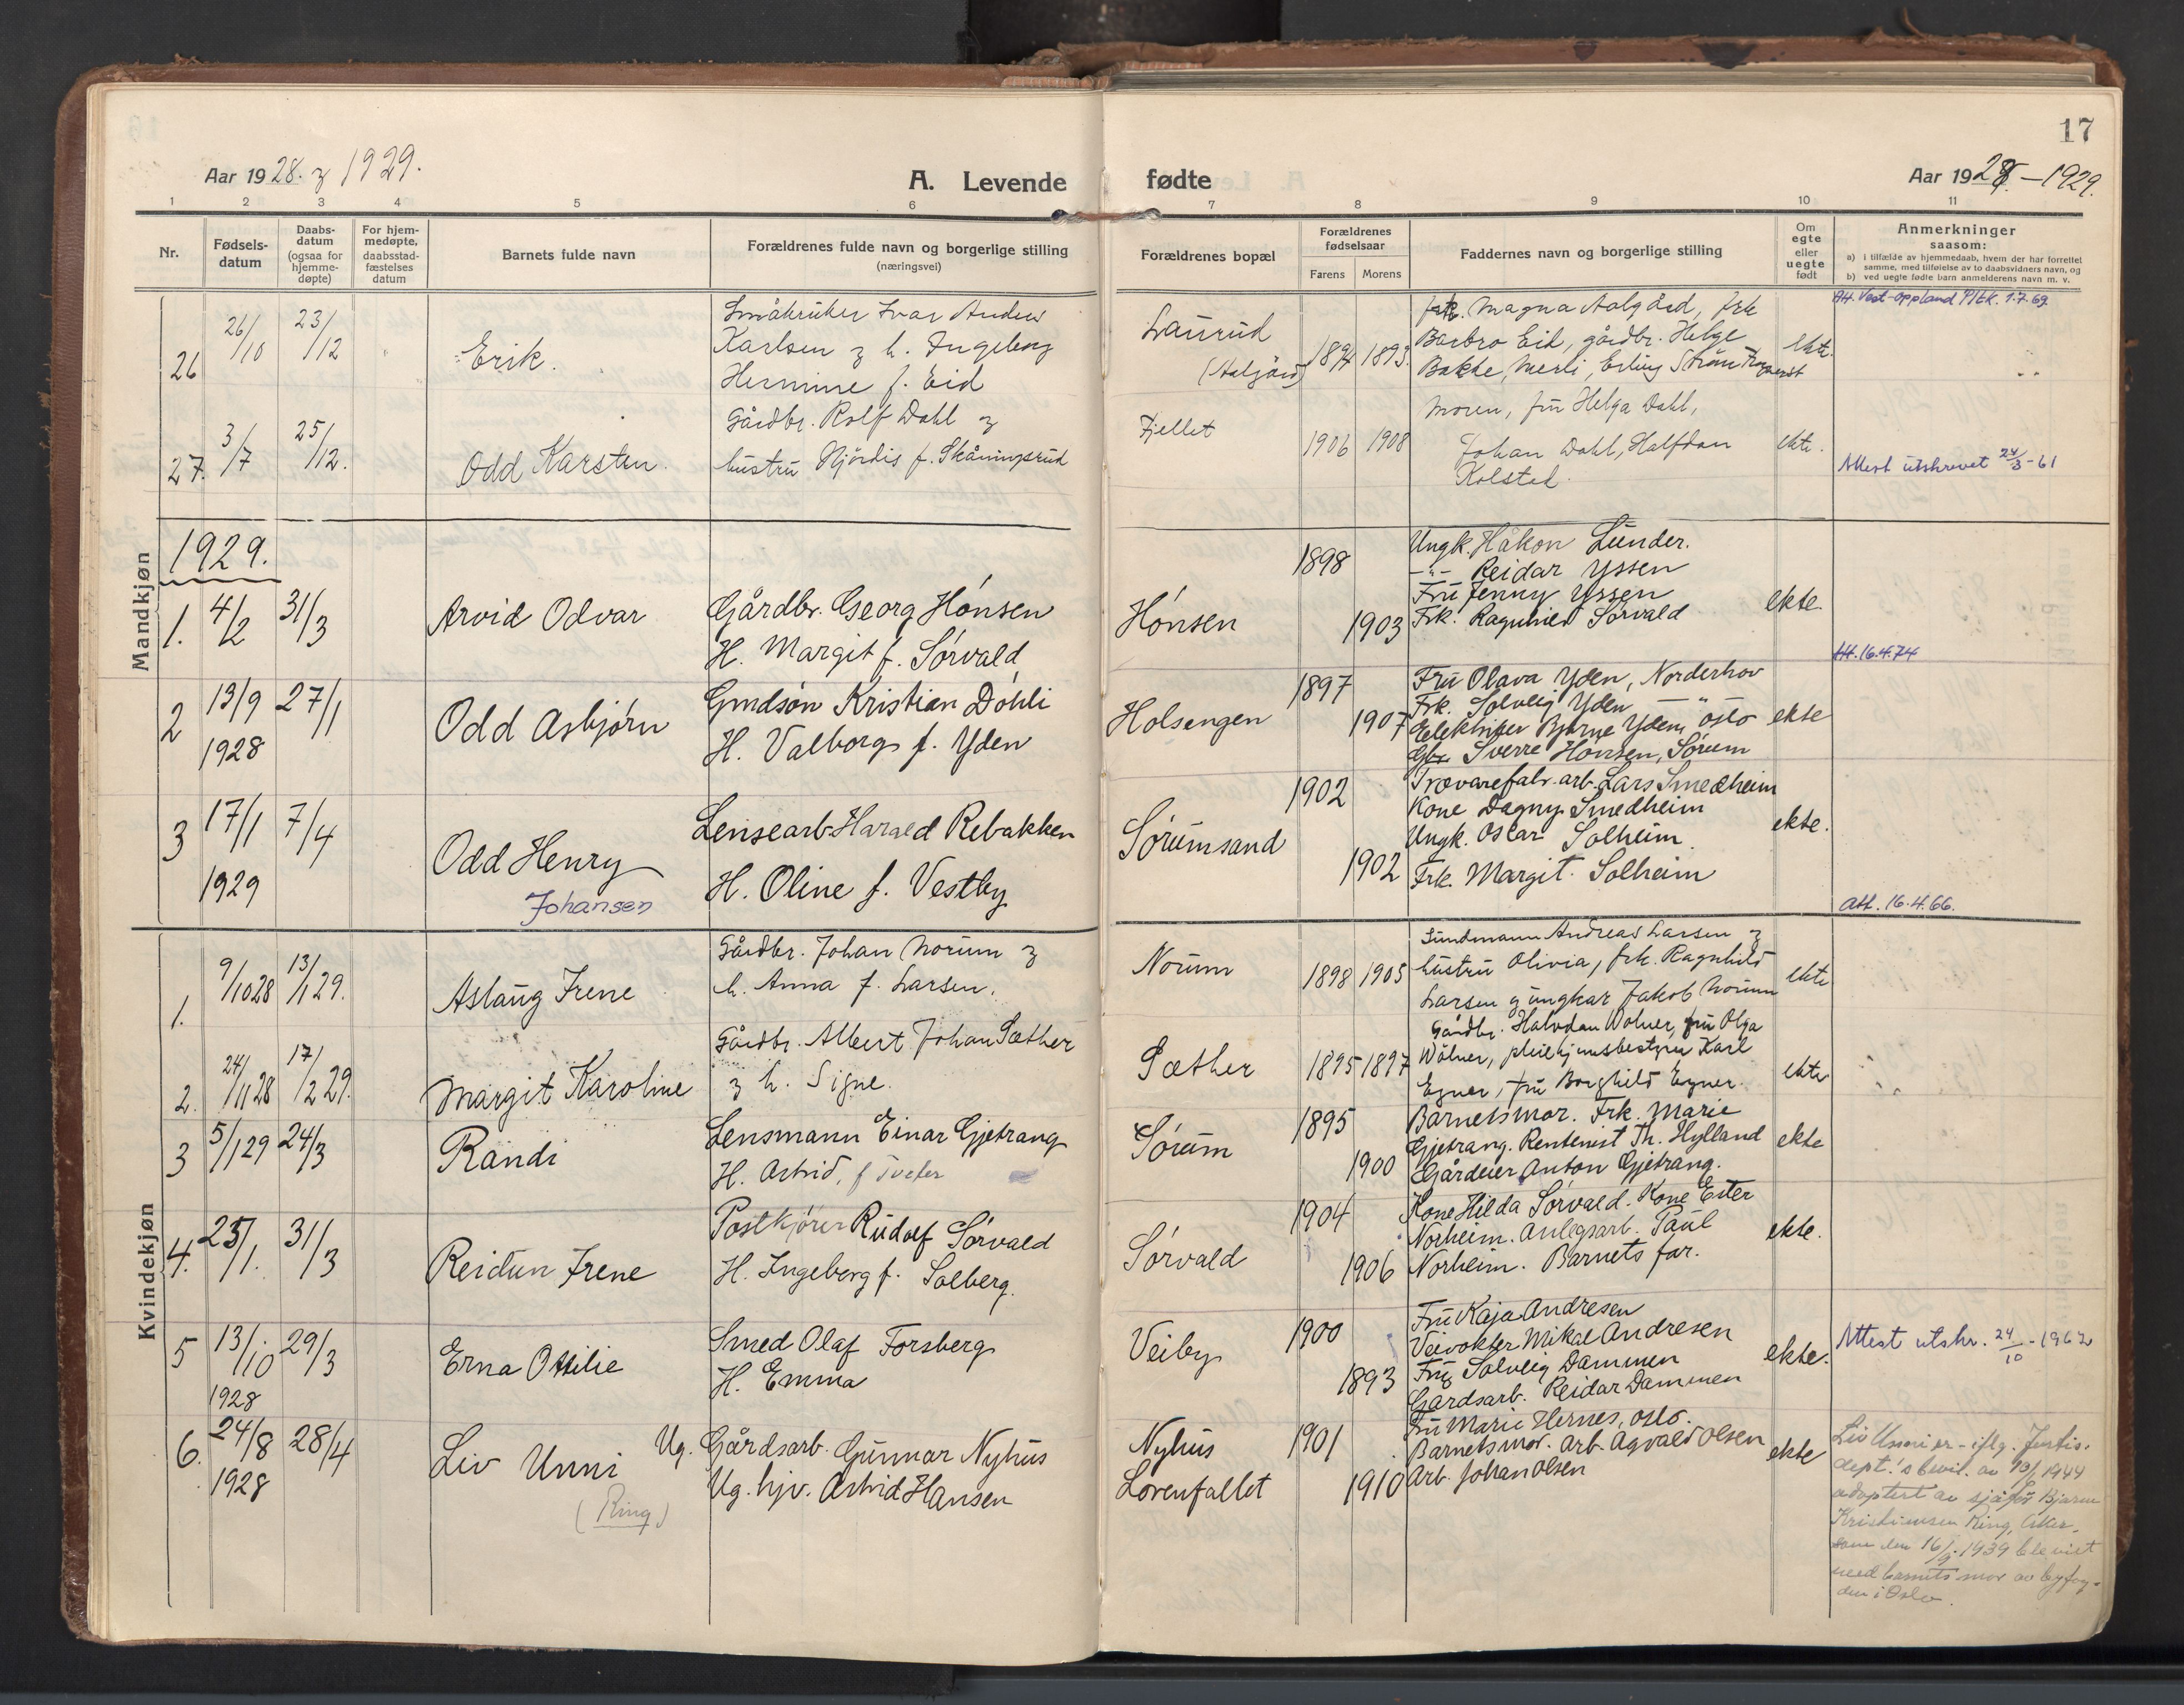 17
Aar 1928. & 1929.
A. Levende
fødte
Aar 1928 - 1929.
1 2 3 4 5 6 7 8 9 10 11
Nr.
Fødsels-
datum
Daabs-
datum
(ogsaa for
hjemme-
døpte)
For hjem-
medøpte,
daabsstad-
fæstelses
datum
Barnets fulde navn
Forældrenes fulde navn og borgerlige stilling
(næringsvei)
Forældrenes bopæl
Forældrenes
fødselsaar
Farens Morens
Faddernes navn og borgerlige stilling
Om
egte
eller
uegte
født
Anmerkninger
saasom:
a) i tilfælde av hjemmedaab, hvem der har forrettet
samme, med tilføielse av to daabsvidners navn, og
b) ved uegte fødte barn anmelderens navn m. v.
Mandkjøn
26
26/10
23/12
Erik.
Småbruker Ivar Anders
Karlsen & h. Ingeborg
Hermine f. Eid
Laurud
(Aalgård)
1894 1893.
frk. Magna Aalgård, frk
Barbro Eid, gårdbr. Helge
Bakke, Merli, Erling Strøm
ekte.
Att. Vest-Oppland P/tk. 1.7.69
27.
3/7
25/12.
Odd Karsten.
Gårdbr. Rolf Dahl &
hustru Hjørdis f. Skåningsrud
Fjellet
1906 1908
Moren, fru Helga Dahl,
Johan Dahl, Halfdan
Kolstad.
ekte.
Attest utskrevet 24/3-61
1929.
1.
4/2
31/3
Arvid Odvar
Gårdbr. Georg Hønsen
H. Margit f. Sørvald
Hønsen
1898
1903
Ungk. Håkon Lunder.
-"- Reidar Yssen
Fru Jenny Yssen
Frk. Ragnhild Sørvald
ekte.
Att. 16.4.74
2
13/9
1928
27/1
Odd Asbjørn
Gmdsøn Kristian Døhli
H. Valborg f. Yden
Holsengen
1897
1907
Fru Olava Yden, Norderhov
Frk. Solveig Yden —"—
Elektriker Bjarne Yden, Oslo
Gbr. Sverre Hønsen, Sørum
ekte
3
17/1
1929
7/4
Odd Henry
Johansen
Lensearb. Harald Rebakken
H. Oline f. Vestby
Sørumsand
1902
1902
Trævarefabr. arb. Lars Smedheim
Kone Dagny Smedheim
Ungk. Oscar Solheim.
Frk. Margit Solheim
ekte.
Att. 16.4.66.
Kvindekjøn
1.
9/10 28
13/1 29.
Aslaug Irene
Gårdbr. Johan Norum &
h. Anna f. Larsen.
Norum
1898 1905
Andreas Larsen &
hustru Olivia, frk. Ragnhild
Larsen & ungkar Jakob Norum
ekte
2.
24/11 28
17/2 29.
Margit Karoline
Gårdbr. Albert Johan Sæther
& h. Signe.
Sæther
1895 1897
Gårdbr. Halvdan Wölner, fru Olga
Wölner, pleiehjemsbestyrer Karl
Egner, fru Borghild Egner.
ekte
3
5/1 29
24/3
Randi
Lensmann Einar Gjetrang
H. Astrid, f Tveter
Sørum
1895
1900
Barnets mor. Frk. Marie
Gjetrang. Rentenist Th. Hylland
Gårdeier Anton Gjetrang.
ekte
4.
25/1.
31/3
Reidun Irene
Postkjører Rudolf Sørvald
H. Ingeborg f. Solberg.
Sørvald
1904
1906
Kone Hilda Sørvald. Kone Ester
Norheim. Anlegsarb. Paul
Norheim. Barnets far.
ekte.
5
13/10
1928
29/3
Erna Ottilie
Smed Olaf Forsberg
H. Emma
Veiby
1900
1893
Fru Kaja Andresen
Veivokter Mikal Andresen
Fru Solveig Dammen
Gardsarb. Reidar Dammen
ekte.
Attest utskr. 24/10-1962
6.
24/8
1928
28/4
Liv Unni
(Ring)
Ug. Gårdsarb. Gunnar Nyhus
Ug. hjv. Astrid Hansen
Nyhus
Lørenfallet
1901
1910
Fru Marie Hernes, Oslo.
Barnets mor. Arb. Agvald Olsen
Arb. Johan Olsen
ekte
Liv Unni er - iflg. Justis-
dept.'s bevil. av 1944
adoptert av sjåfør Bjarne
Kristiansen Ring, Aker,
som den 16/9 1939 ble viet
med barnets mor av byfog-
den i Oslo.